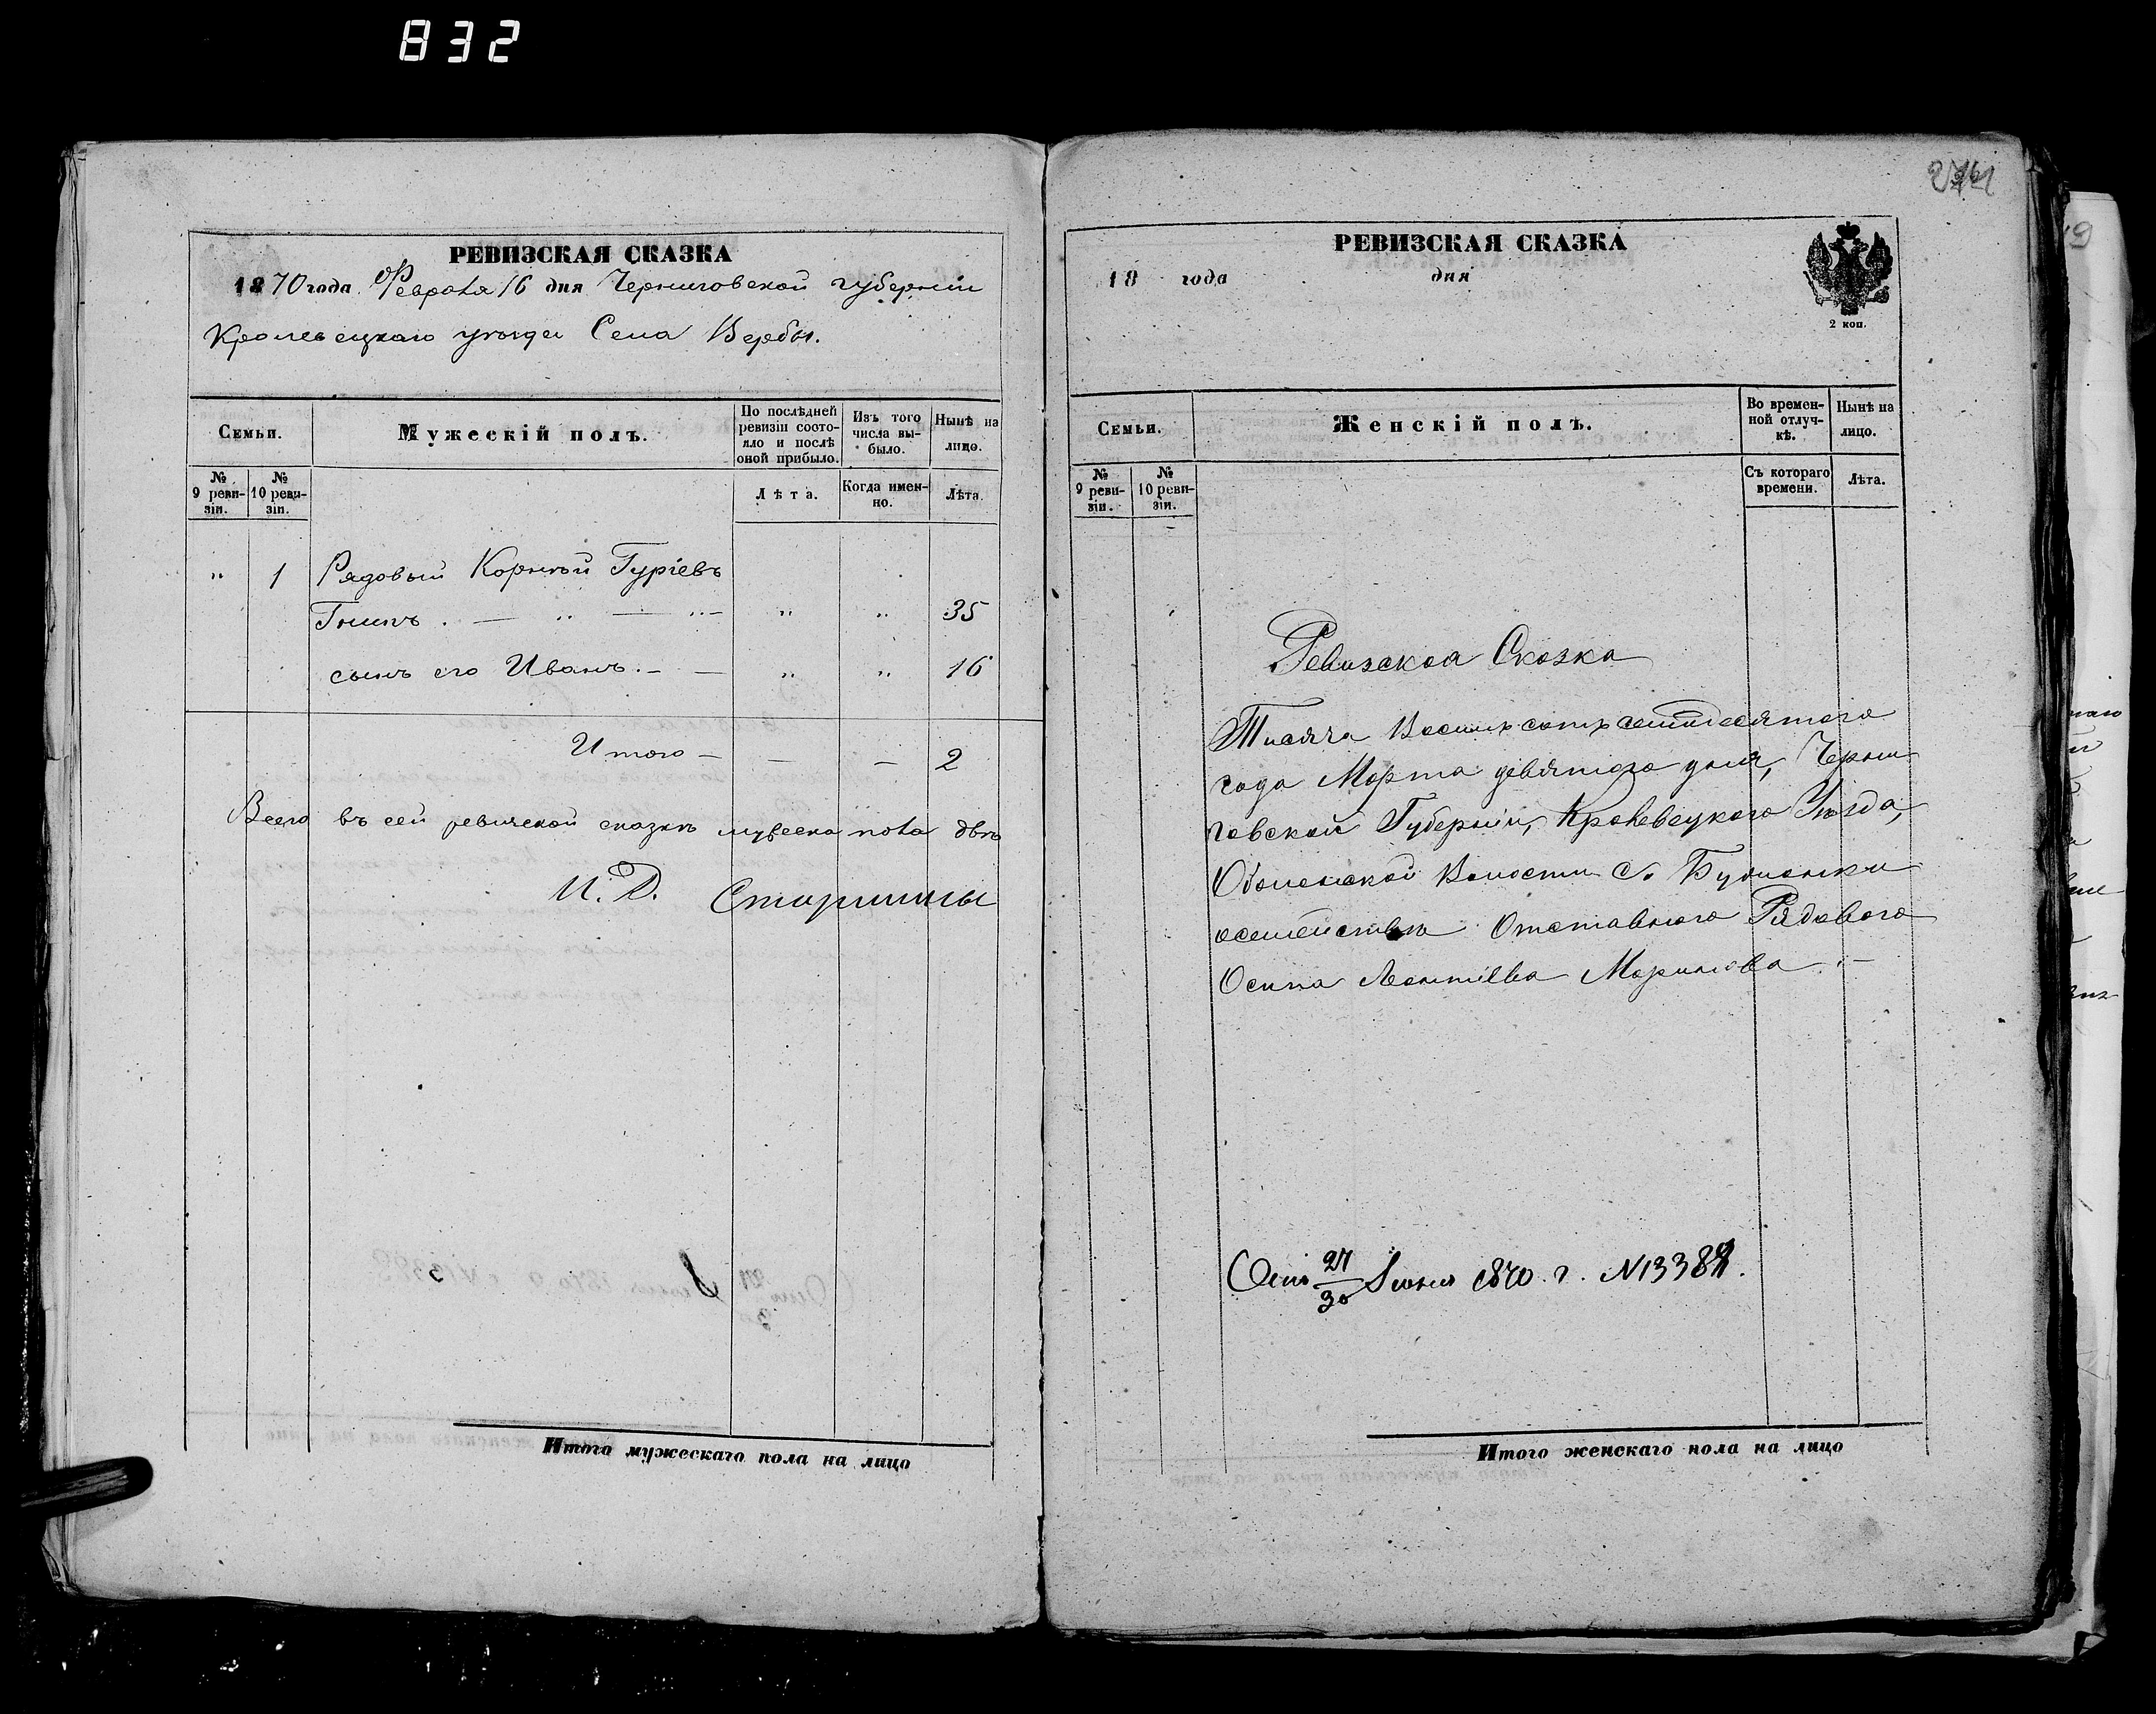 832
РЕВИЗСКАЯ СКАЗКА
1870 года Февраля 16 дня Черниговской губерніи
Кролевецкаго уѣзда Села Вербы.
Семьи.
Мужескій полъ.
По послѣдней ревизіи состояло и послѣ оной прибыло.
Изъ того числа выбыло.
Нынѣ на лицо.
№ 9 ревизіи.
№ 10 ревизіи.
Лѣта.
Когда именно.
Лѣта.
" 1 Рядовый Корнѣй Гуріевъ
" " 35
сынъ его Иванъ. — " " 16
Итого — — — 2
Всего въ сей ревизской сказкѣ мужеска пола двѣ
И. Д. Старшины
Итого мужескаго пола на лицо
РЕВИЗСКАЯ СКАЗКА
18 года дня
2 коп.
Семьи.
Женскій полъ.
Во временной отлучкѣ.
Нынѣ на лицо.
№ 9 ревизіи.
№ 10 ревизіи.
Съ котораго времени.
Лѣта.
Ревизская Сказка
Тисяча Восимъ сотъ семидесятого
года Марта девятого дня, Черни
говской Губерніи, Кролевецкого Уѣзда,
Волости С.
осемействѣ Отставного Рядового
Осипа Леонтіева Маринова. —
Отъ 27/30 Іюня 1870. г. N1338
Итого женскаго пола на лицо